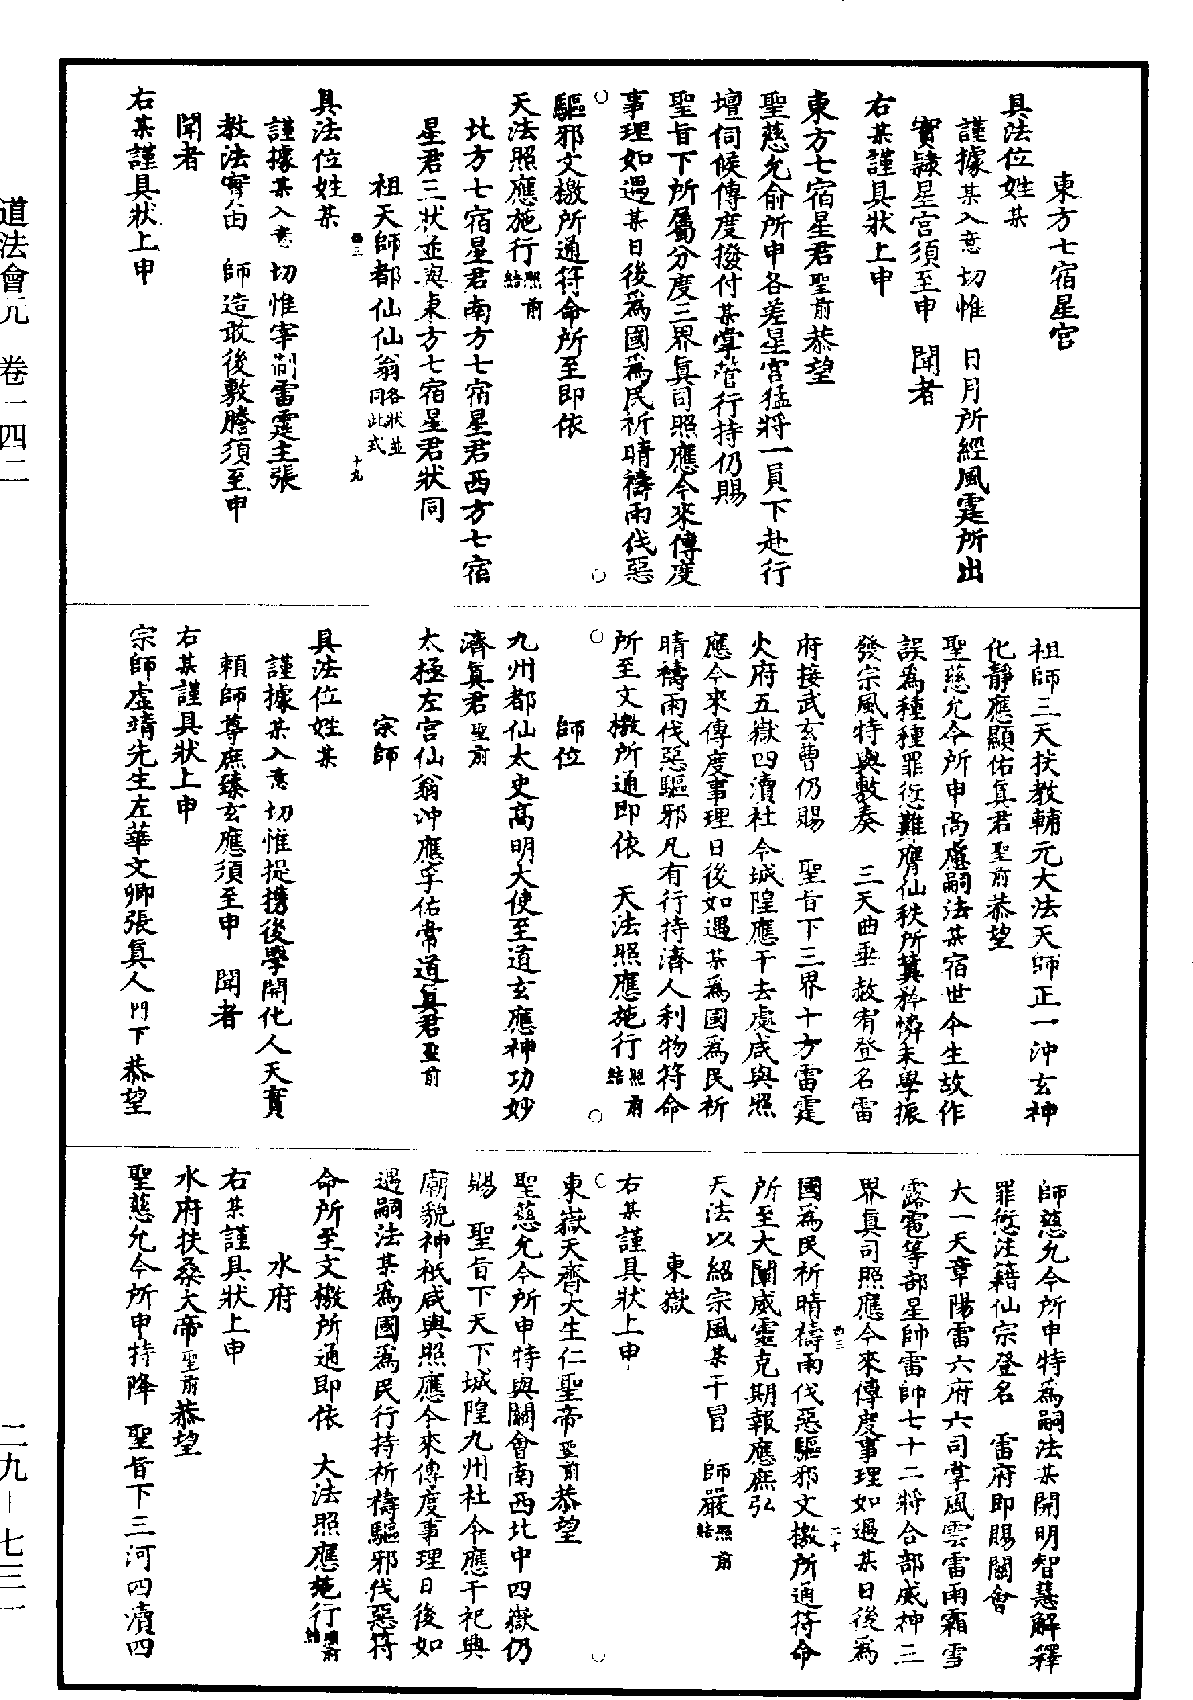 東方七宿星官
具法位姓某
謹據某入意 切惟 日月所經風霆所出
實隷星宫須至申 聞者
右某謹具狀上申
東方七宿星君聖前恭望
聖慈允俞所申各差星官猛將一員下赴行
壇伺候傳度撥付某掌管行持仍賜
聖旨下所屬分度三界真司照應今來傳度
事理如遇某日後爲國爲民祈晴禱雨伐惡
驅邪文檄所通符命所至即依
天法照應施行照前結
北方七宿星君南方七宿星君西方七宿
星君三狀並與東方七宿星君狀同
祖天師都仙仙翁各狀並同此式
十九
具法位姓某
謹據某入意 切惟宰制雷霆主張
教法寔由 師造敢後敷謄須至申
聞者
右某謹具狀上申
祖師三天扶教輔元大法天師正一沖玄神
化靜應顯佑真君聖前恭望
聖慈允今所申高處嗣法某宿世今生故作
誤為種種罪愆難膺仙秩所冀矜憐末學振
發宗風特與敷奏 三天曲垂赦宥登名雷
府接武玄曹仍賜 聖旨下三界十方雷霆
火府五嶽四瀆社令城隍應干去處咸與照
應今來傳度事理日後如遇某為國為民祈
晴禱雨伐惡驅邪凡有行持濟人利物符命
所至文檄所通即依 天法照應施行照前結
師位
九州都仙太史高明大使至道玄應神功妙
濟真君聖前
太極左宫仙翁沖應孚佑常道真君聖前
宗師
具法位姓某
謹據某入意 切惟提携後學開化人天實
賴師尊庶臻玄應須至申 聞者
右某謹具狀上申
宗師虛靖先生左華文卿張真人門下恭望
師慈允今所申特為嗣法某開明智慧解釋
罪愆注籍仙宗登名 雷府即賜關會
大一天章陽雷六府六司掌風雲雷雨霜雪
露雹等部星帥雷帥七十二將合部威神三
界真司照應今來傳度事理如遇某日後爲
國為民祈晴禱雨伐惡驅邪文檄所通符命
二十
所至大闡威靈克期報應庶弘
天法以紹宗風某干冒 師嚴照前結
東嶽
右某謹具狀上申
東嶽天齊大生仁聖帝聖前恭望
聖慈允今所申特與關會南西北中四嶽仍
賜 聖旨下天下城隍九州社令應干祀典
廟貌神祇咸與照應今來傳度事理日後如
遇嗣法某為國爲民行持祈禱驅邪伐惡符
命所至文檄所通即依 大法照應施行照前結
水府
右某謹具狀上申
水府扶桑大帝聖前恭望
聖慈允今所申特降 聖旨下三河四瀆四
道法會元 卷一四二
二九-七三一